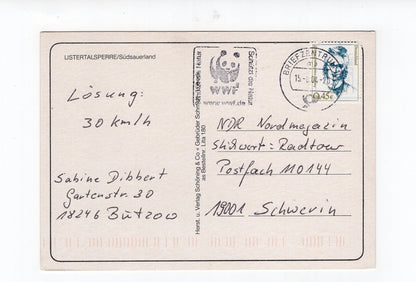 LISTERTALSPERRE/Südsauerland
Lösung:
30 km/h
Sabine Dibbert
Gartenstr. 30
18246 Bützow
Horst. u. Verlag Schöning & Co + Gebrüder Schmidt
as Bestellnr. Lita 180
WWF
Schützt die Natur
BRIEFZENTRUM
NDR Nordmagazin
Stichwort: Radtour
Postfach 110144
19001 Schwerin